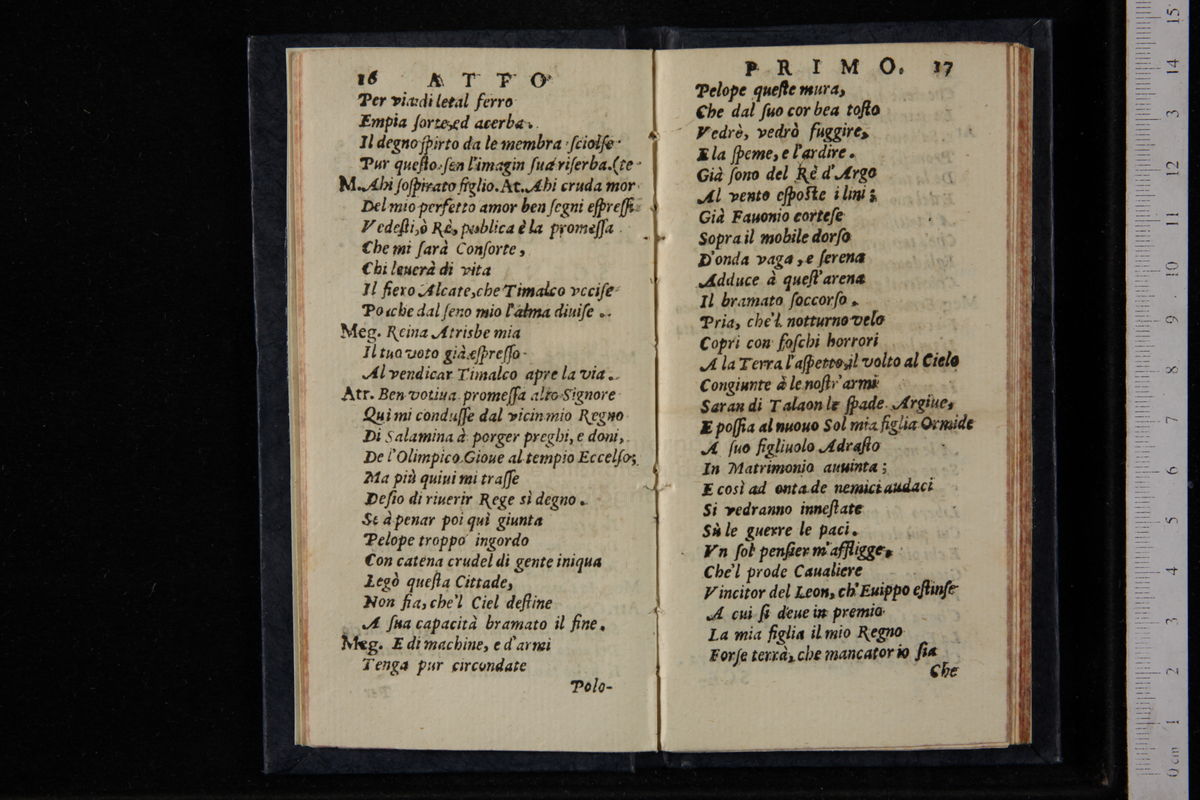 16 ATTO
Per via di letal ferro
Empia sorte, ed acerba.
Il degno spirto da le membra sciolse
Pur questo sen l'imagin sua riserba. (te
M. Ahi sospirato figlio. At. Ahi cruda mor
Del mio perfetto amor ben segni espressi
Vedesti, ò Rè, publica è la promessa
Che mi sarà Consorte,
Chi leuerà di vita
Il fiero Alcate, che Timalco vccise
Poiche dal seno mio l'alma diuise.
Meg. Reina Atrisbe mia
Il tuo voto già espresso
Al vendicar Timalco apre la via.
Atr. Ben votiua promessa alto Signore
Qui mi condusse dal vicin mio Regno
Di Salamina à porger preghi, e doni,
De l'Olimpico Gioue al tempio Eccelso;
Ma più quiui mi trasse
Desio di riuerir Rege sì degno.
Se à penar poi quì giunta
Pelope troppo ingordo
Con catena crudel di gente iniqua
Legò questa Cittade,
Non fia, che'l Ciel destine
A sua capacità bramato il fine.
Meg. E di machine, e d'armi
Tenga pur circondate
Polo-
PRIMO. 17
Pelope queste mura,
Che dal suo cor bea tosto
Vedrè, vedrò fuggire,
E la speme, e l'ardire.
Già sono del Rè d'Argo
Al vento esposte i lini;
Già Fauonio cortese
Sopra il mobile dorso
D'onda vaga, e serena
Adduce à quest'arena
Il bramato soccorso.
Pria, che'l notturno velo
Copri con foschi horrori
A la Terra l'aspetto, il volto al Cielo
Congiunte à le nostr'armi
Saran di Talaon le spade Argiue,
E possia al nuouo Sol mia figlia Ormide
A suo figliuolo Adrasto
In Matrimonio auuinta;
E così ad onta de nemici audaci
Si vedranno innestate
Sù le guerre le paci.
Vn sol pensier m'affligge,
Che'l prode Caualiere
Vincitor del Leon, ch'Euippo estinse
A cui si deue in premio
La mia figlia il mio Regno
Forse terrà, che mancator io sia
Che
0 cm 1 2 3 4 5 6 7 8 9 10 11 12 13 14 15